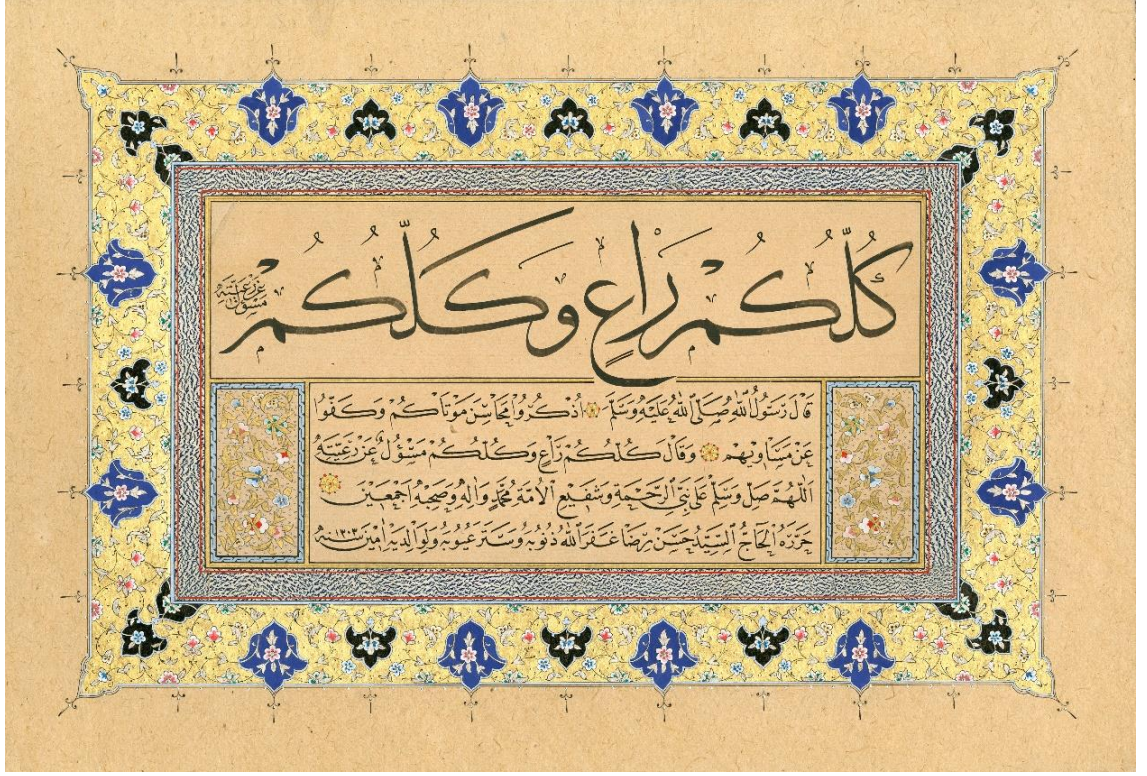 كُلُّكُمْ رَاعٍ وَكُلُّكُمْ مَسْؤُلٌ عَنْ رَعِيَّتِهِ
قَالَ رَسُولُ اللهِ صَلَّى اللهُ عَلَيْهِ وَسَلَّمَ اُذْكُرُوا مَحَاسِنَ مَوْتَاكُمْ وَكَفُّوا
عَنْ مَسَاوِيهِمْ وَقَالَ كُلُّكُمْ رَاعٍ وَكُلُّكُمْ مَسْؤُلٌ عَنْ رَعِيَّتِهِ
اَللّٰهُمَّ صَلِّ وَسَلِّمْ عَلَى نَبِيِّ الرَّحْمَةِ وَشَفِيعِ الْاُمَّةِ مُحَمَّدٍ وَاٰلِهِ وَصَحْبِهِ اَجْمَعِينَ
حَرَّرَهُ الْحَاجُّ السَّيِّدُ حَسَنْ رِضَا غَفَرَ اللهُ ذُنُوبَهُ وَسَتَرَ عُيُوبَهُ وَلِوَالِدَيْهِ اٰمِينَ سنه ١٣٠٣